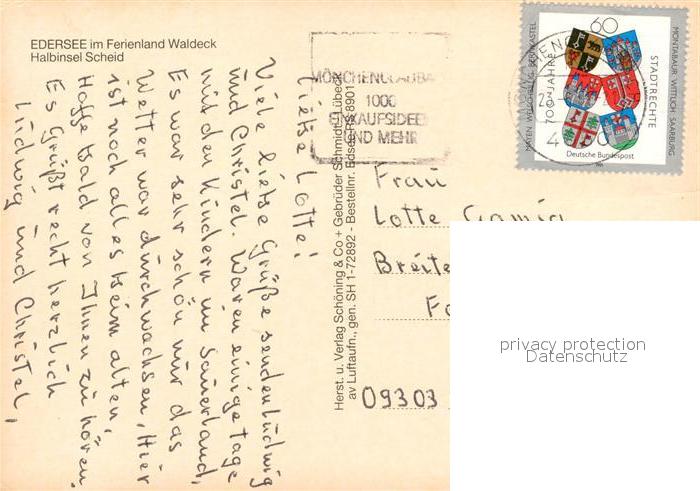 EDERSEE im Ferienland Waldeck
Halbinsel Scheid
Liebe Lotte!
Viele liebe Grüße senden Ludwig
und Christel. Waren einige Tage
mit den Kindern im Sauerland,
Es war sehr schön nur das
Wetter war durchwachsen, Hier
ist noch alles beim alten,
Hoffe bald von Ihnen zu hören.
Es Grüßt recht herzlich
Ludwig und Christel,
Herst. u. Verlag Schöning & Co + Gebrüder Schmidt, Lübeck
av Luftaufn., gen. SH 1-72892 - Bestellnr. Edsee Rs 8901
MÖNCHENGLADBA
1000
EINKAUFSIDEEN
UND MEHR
60
700 JAHRE
STADTRECHTE
MAYEN WELSCHBILLIG BERNKASTEL
MONTABAUR WITTLICH SAARBURG
Deutsche Bundespost
Frau
Lotte
Breite
09303
privacy protection
Datenschutz